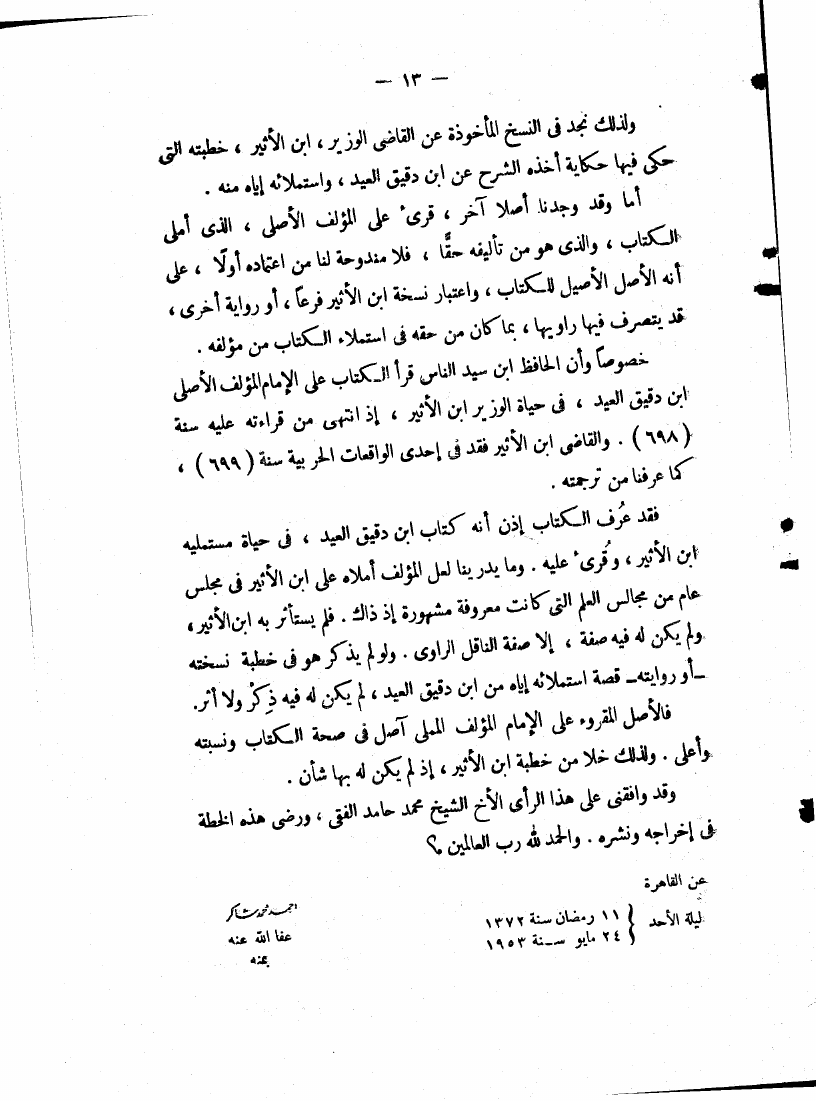 — ١٣ —
ولذلك نجد فى النسخ المأخوذة عن القاضى الوزير ، ابن الأثير ، خطبته التى
حكى فيها حكاية أخذه الشرح عن ابن دقيق العيد ، واستملائه إياه منه .
أما وقد وجدنا أصلا آخر ، قرىء على المؤلف الأصلى ، الذى أملى
الكتاب ، والذى هو من تأليفه حقًّا ، فلا مندوحة لنا من اعتماده أولًا ، على
أنه الأصل الأصيل للكتاب ، واعتبار نسخة ابن الأثير فرعاً ، أو رواية أخرى ،
قد يتصرف فيها راويها ، بما كان من حقه فى استملاء الكتاب من مؤلفه .
خصوصاً وأن الحافظ ابن سيد الناس قرأ الكتاب على الإمام المؤلف الأصلى
ابن دقيق العيد ، فى حياة الوزير ابن الأثير ، إذ انتهى من قراءته عليه سنة
(٦٩٨) . والقاضى ابن الأثير فقد فى إحدى الواقعات الحربية سنة (٦٩٩) ،
كما عرفنا من ترجمته .
فقد عُرف الكتاب إذن أنه كتاب ابن دقيق العيد ، فى حياة مستمليه
ابن الأثير ، وقُرىء عليه . وما يدرينا لعل المؤلف أملاه على ابن الأثير فى مجلس
عام من مجالس العلم التى كانت معروفة مشهورة إذ ذاك . فلم يستأثر به ابن الأثير ،
ولم يكن له فيه صفة ، إلا صفة الناقل الراوى . ولو لم يذكر هو فى خطبة نسخته
ـ أو روايته ـ قصة استملائه إياه من ابن دقيق العيد ، لم يكن له فيه ذِكْر ولا أثر.
فالأصل المقروء على الإمام المؤلف المملى آصل فى صحة الكتاب ونسبته
وأعلى . ولذلك خلا من خطبة ابن الأثير ، إذ لم يكن له بها شأن .
وقد وافقنى على هذا الرأى الأخ الشيخ محمد حامد الفقى ، ورضى هذه الخطة
فى إخراجه ونشره . والحمد لله رب العالمين ؟
عن القاهرة
ليلة الأحد { ١١ رمضان سنة ١٣٧٢
٢٤ مايو سنة ١٩٥٣
احمد محمد شاكر
عفا الله عنه
بمنه